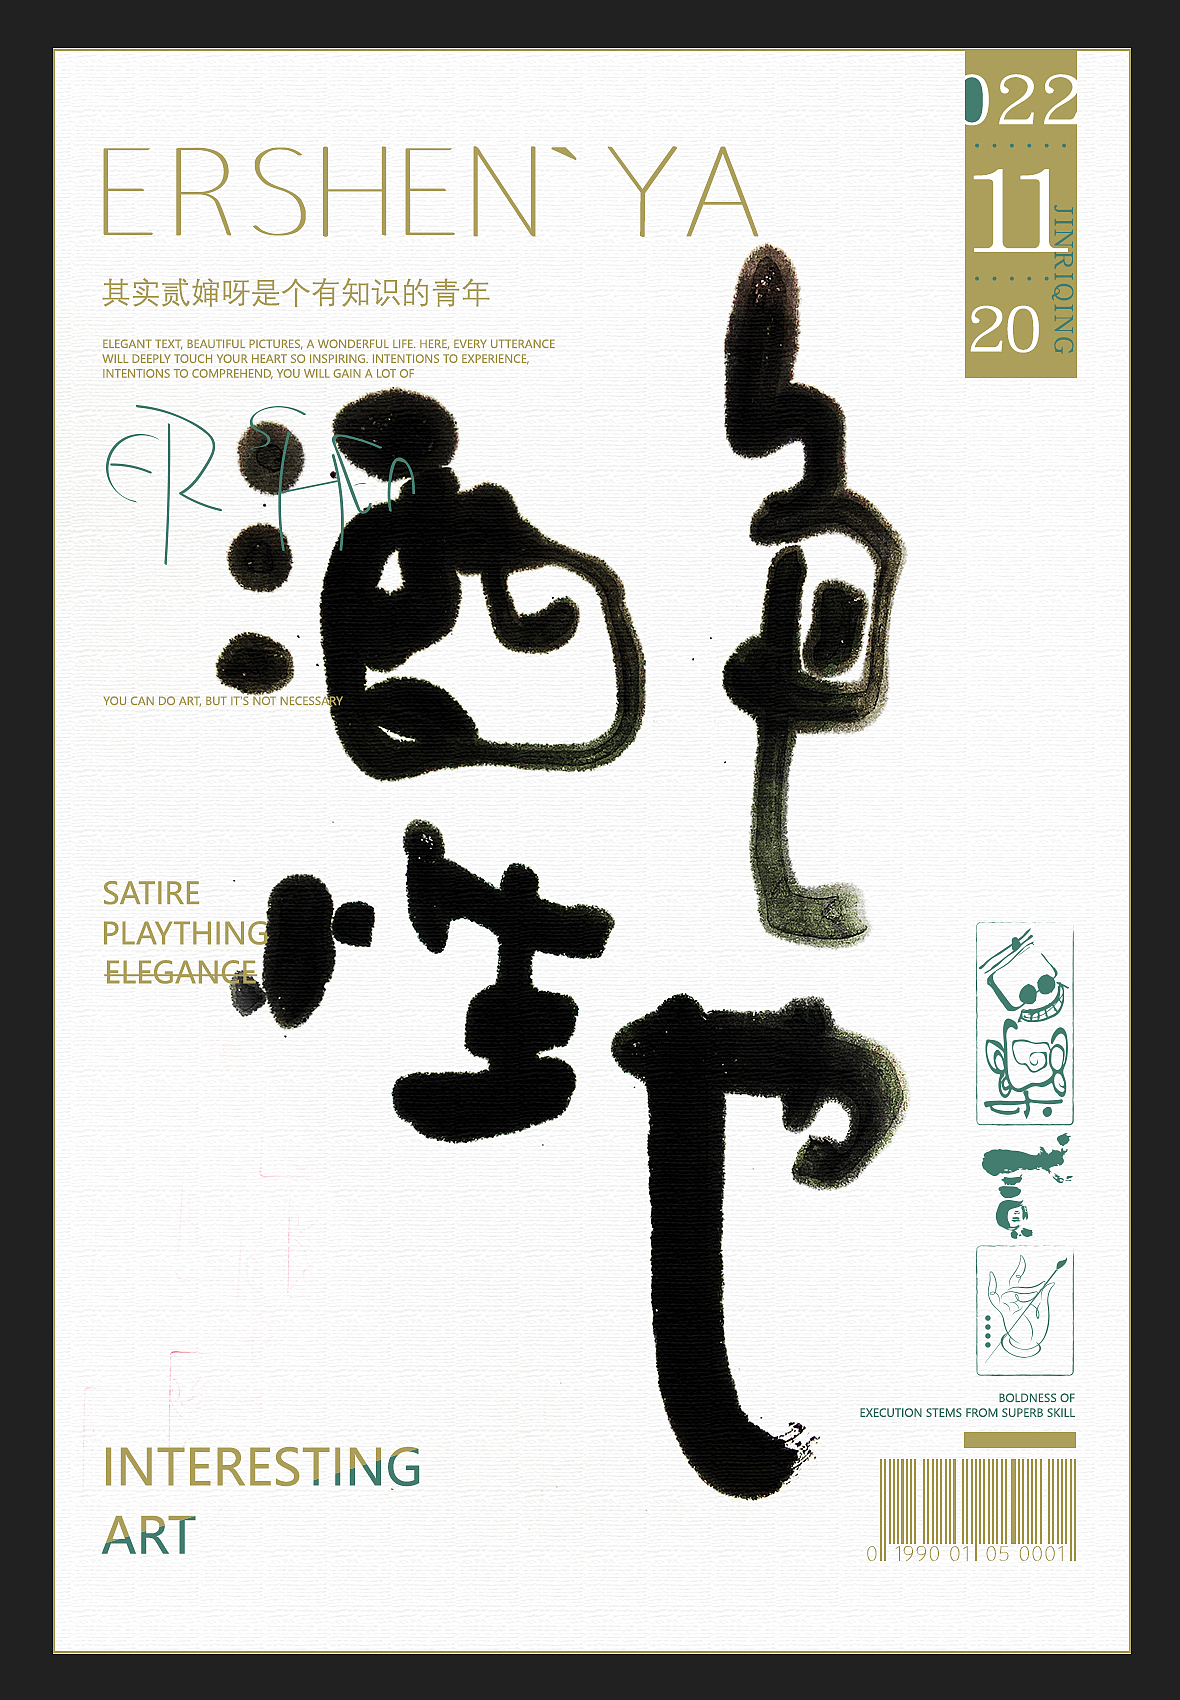 022
11
20
JINRIQING
ERSHEN`YA
其实贰婶呀是个有知识的青年
ELEGANT TEXT, BEAUTIFUL PICTURES, A WONDERFUL LIFE. HERE, EVERY UTTERANCE
WILL DEEPLY TOUCH YOUR HEART SO INSPIRING. INTENTIONS TO EXPERIENCE,
INTENTIONS TO COMPREHEND, YOU WILL GAIN A LOT OF
ERSHEn
酒色
性也
YOU CAN DO ART, BUT IT'S NOT NECESSARY
SATIRE
PLAYTHING
ELEGANCE
BOLDNESS OF
EXECUTION STEMS FROM SUPERB SKILL
INTERESTING
ART
0 1990 01 05 0001